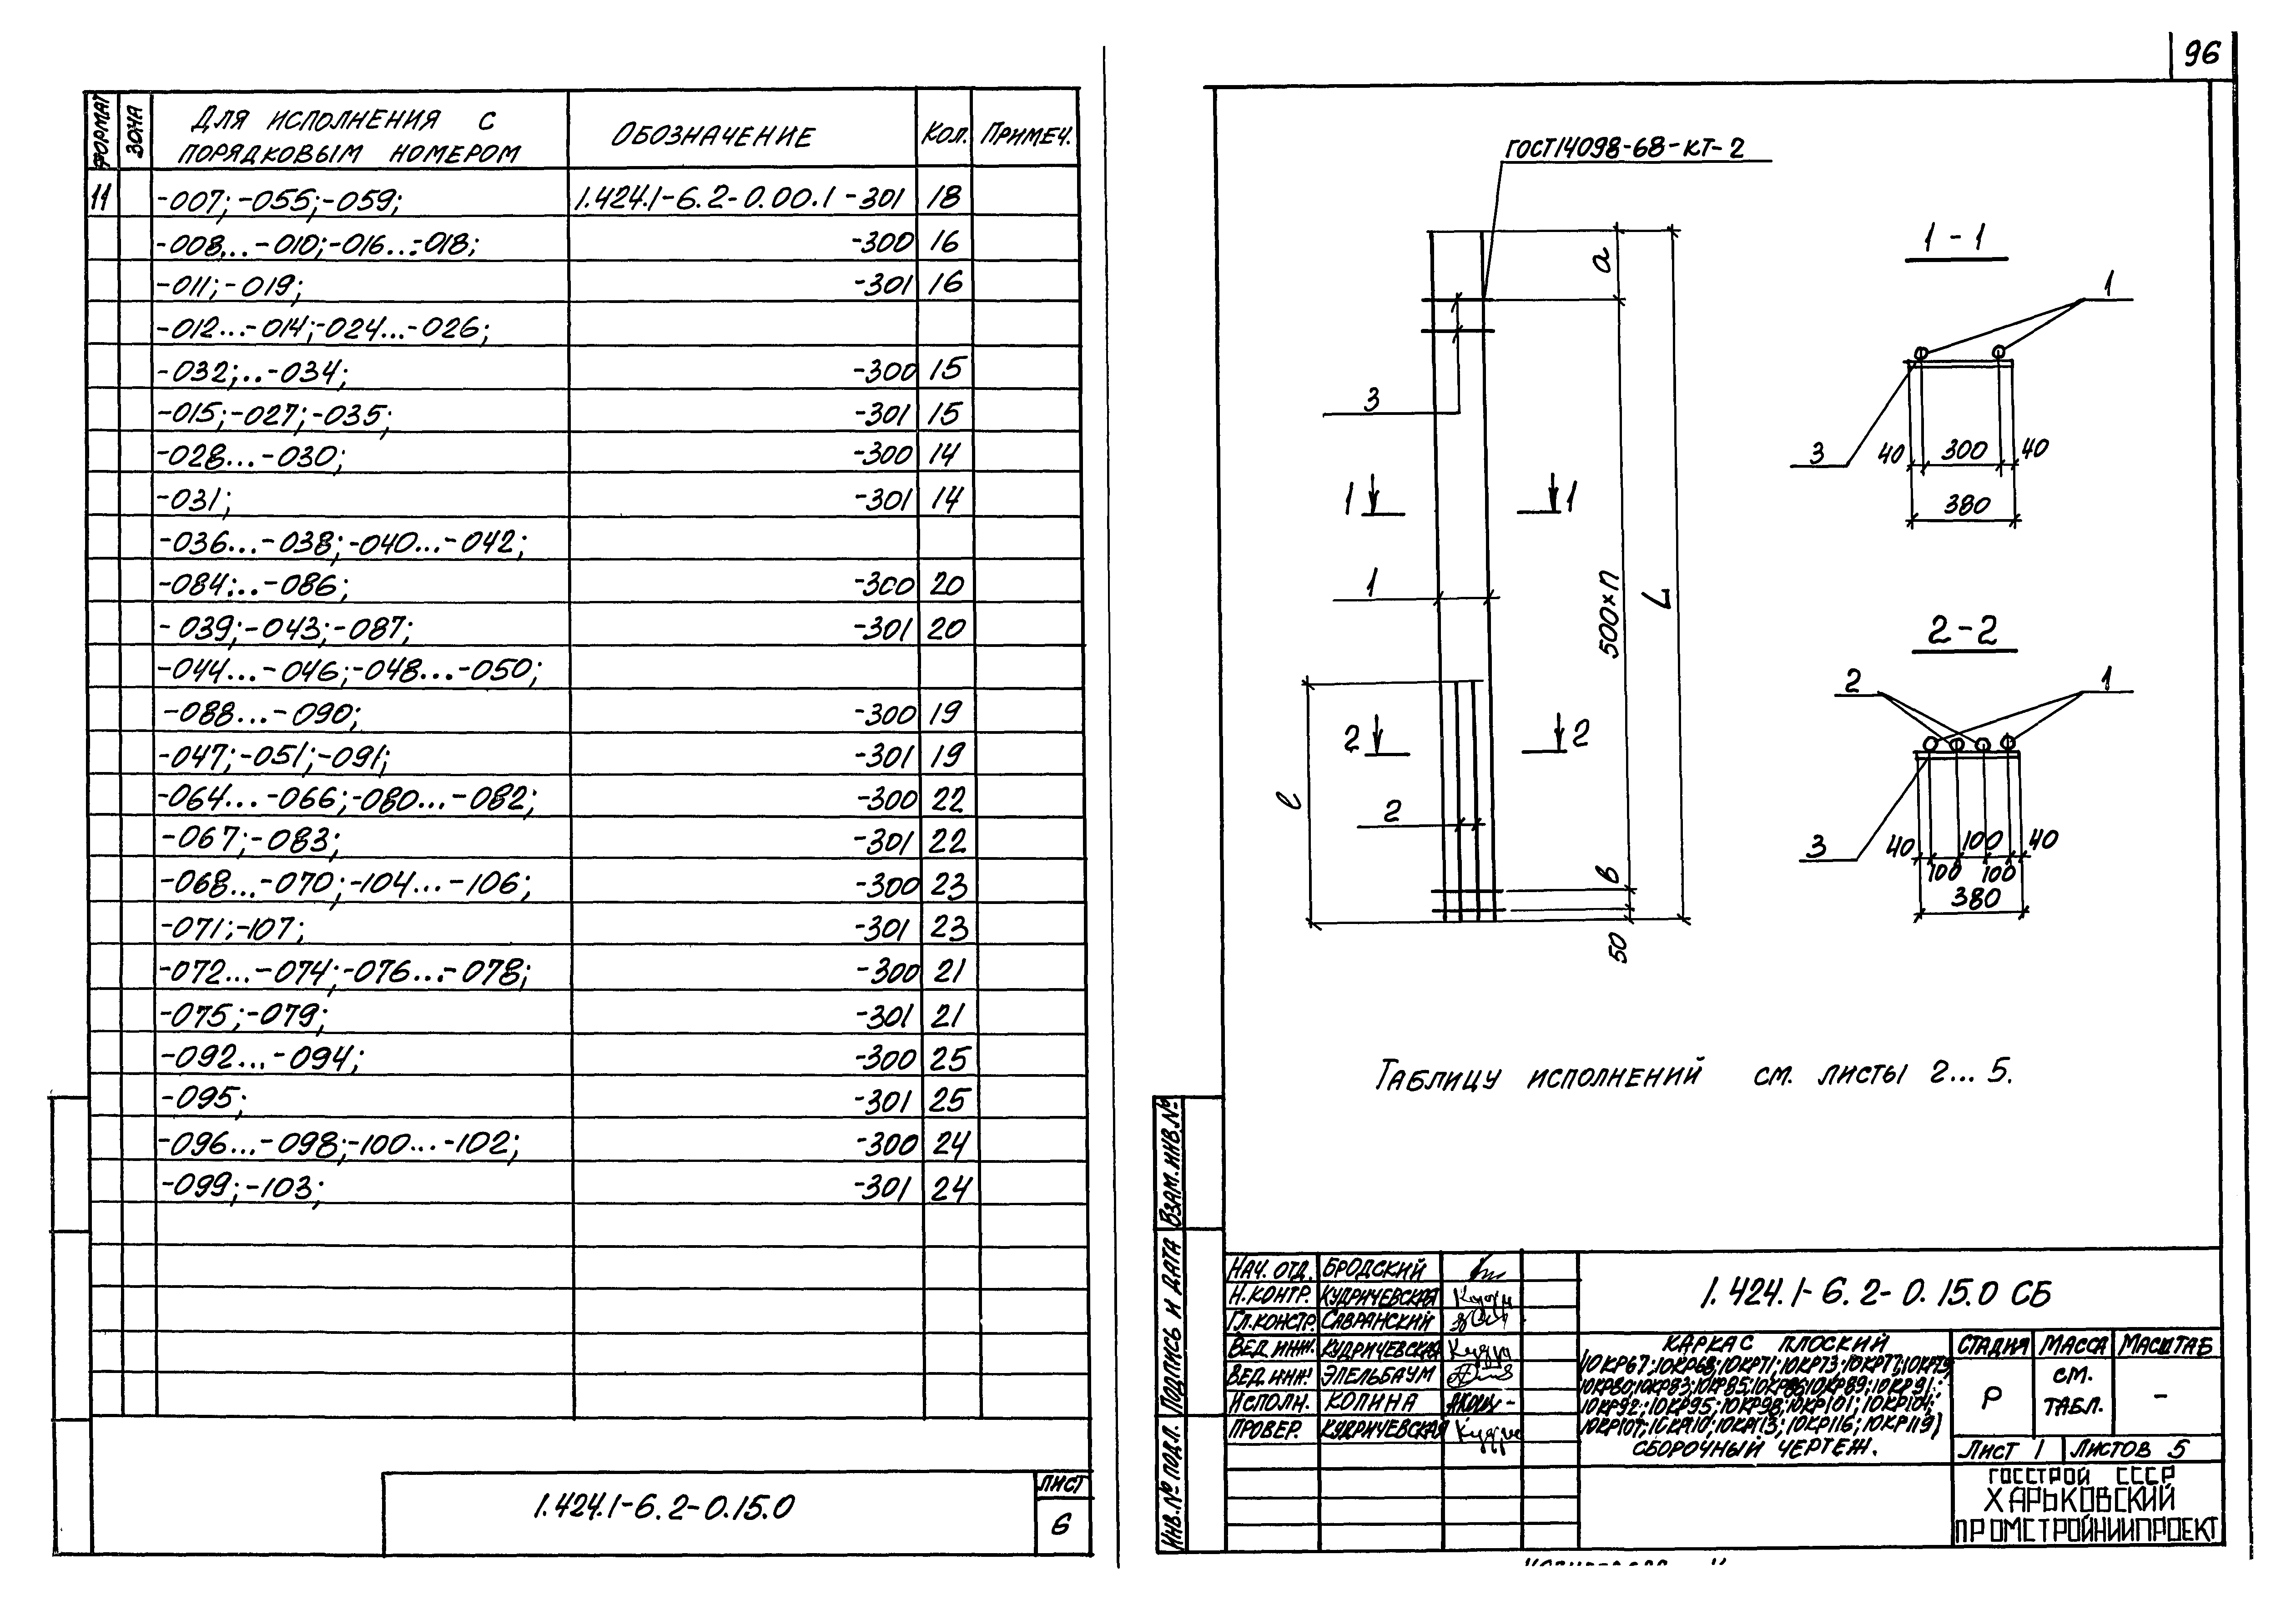 96
ФОРМАТ ЗОНА ДЛЯ ИСПОЛНЕНИЯ С ПОРЯДКОВЫМ НОМЕРОМ ОБОЗНАЧЕНИЕ КОЛ. ПРИМЕЧ.
11 -007; -055; -059; 1.424.1-6.2-0.00.1 -301 18
-008...-010; -016...-018; -300 16
-011; -019; -301 16
-012...-014; -024...-026;
-032;..-034; -300 15
-015; -027; -035; -301 15
-028...-030; -300 14
-031; -301 14
-036...-038; -040...-042;
-084;..-086; -300 20
-039; -043; -087; -301 20
-044...-046; -048...-050;
-088...-090; -300 19
-047; -051; -091; -301 19
-064...-066; -080...-082; -300 22
-067; -083; -301 22
-068...-070; -104...-106; -300 23
-071; -107; -301 23
-072...-074; -076...-078; -300 21
-075; -079; -301 21
-092...-094; -300 25
-095; -301 25
-096...-098; -100...-102; -300 24
-099; -103; -301 24
1.424.1-6.2-0.15.0
ЛИСТ
6
ГОСТ14098-68-КТ-2
а
3
1 1
1
500×п
L
2 2
ℓ
2
в
50
1-1
1
3
40 300 40
380
2-2
2 1
3
40 100 40
100 100
380
ТАБЛИЦУ ИСПОЛНЕНИЙ СМ. ЛИСТЫ 2...5.
ВЗАМ.ИНВ.№
ПОДПИСЬ И ДАТА
ИНВ.№ ПОДЛ.
НАЧ. ОТД. БРОДСКИЙ
Н.КОНТР. КУДРИЧЕВСКАЯ
ГЛ.КОНСТР. САВРАНСКИЙ
ВЕД. ИНЖ. КУДРИЧЕВСКАЯ
ВЕД. ИНЖ. ЭПЕЛЬБАУМ
ИСПОЛН. КОПИНА
ПРОВЕР. КУДРИЧЕВСКАЯ
1.424.1-6.2-0.15.0 СБ
КАРКАС ПЛОСКИЙ
(10КР67; 10КР68; 10КР71; 10КР73; 10КР77; 10КР79;
10КР80; 10КР83; 10КР85; 10КР86; 10КР89; 10КР91;
10КР92; 10КР95; 10КР98; 10КР101; 10КР104;
10КР107; 10КР110; 10КР113; 10КР116; 10КР119)
СБОРОЧНЫЙ ЧЕРТЕЖ.
СТАДИЯ МАССА МАСШТАБ
Р СМ. ТАБЛ. -
ЛИСТ 1 ЛИСТОВ 5
ГОССТРОЙ СССР
ХАРЬКОВСКИЙ
ПРОМСТРОЙНИИПРОЕКТ